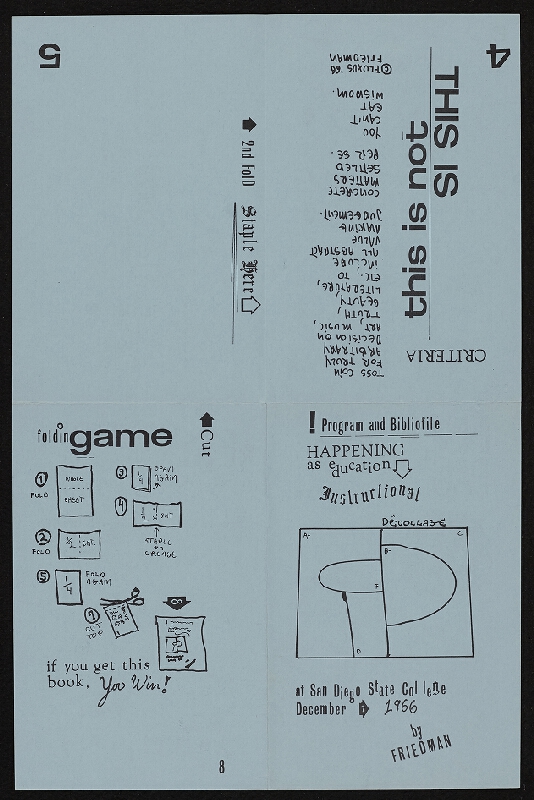 5
2nd FolD
Staple Here
4
THIS IS
this is not
CRITERIA
TOSS COIN
FOR TRULY
ARBITRARY
DECISION ON
ART, MUSIC,
TRUTH,
BEAUTY
LITERATURE,
ETC. TO
INCLUDE
ALL ABSTRACT
VALUE
MAKING
JUDGEMENT.
CONCRETE
MATTERS
SETTLED
PER SE.
YOU
CAN'T
EAT
WISDOM.
©FLUXUS 66
FRIEDMAN
foldin game
Cut
1
FOLD
SHEET
2
FOLD
1/2
3
AGAIN
1/4
4
STAPLE
ON
CREASE
5
FOLD
AGAIN
1/4
8
if you get this
book, You Win!
8
! Program and Bibliofile
HAPPENING
as education
Instructional
DÉCOLLAGE
A-
B-
C
D
E
at San Diego State College
December 1 1966
by
FRIEDMAN